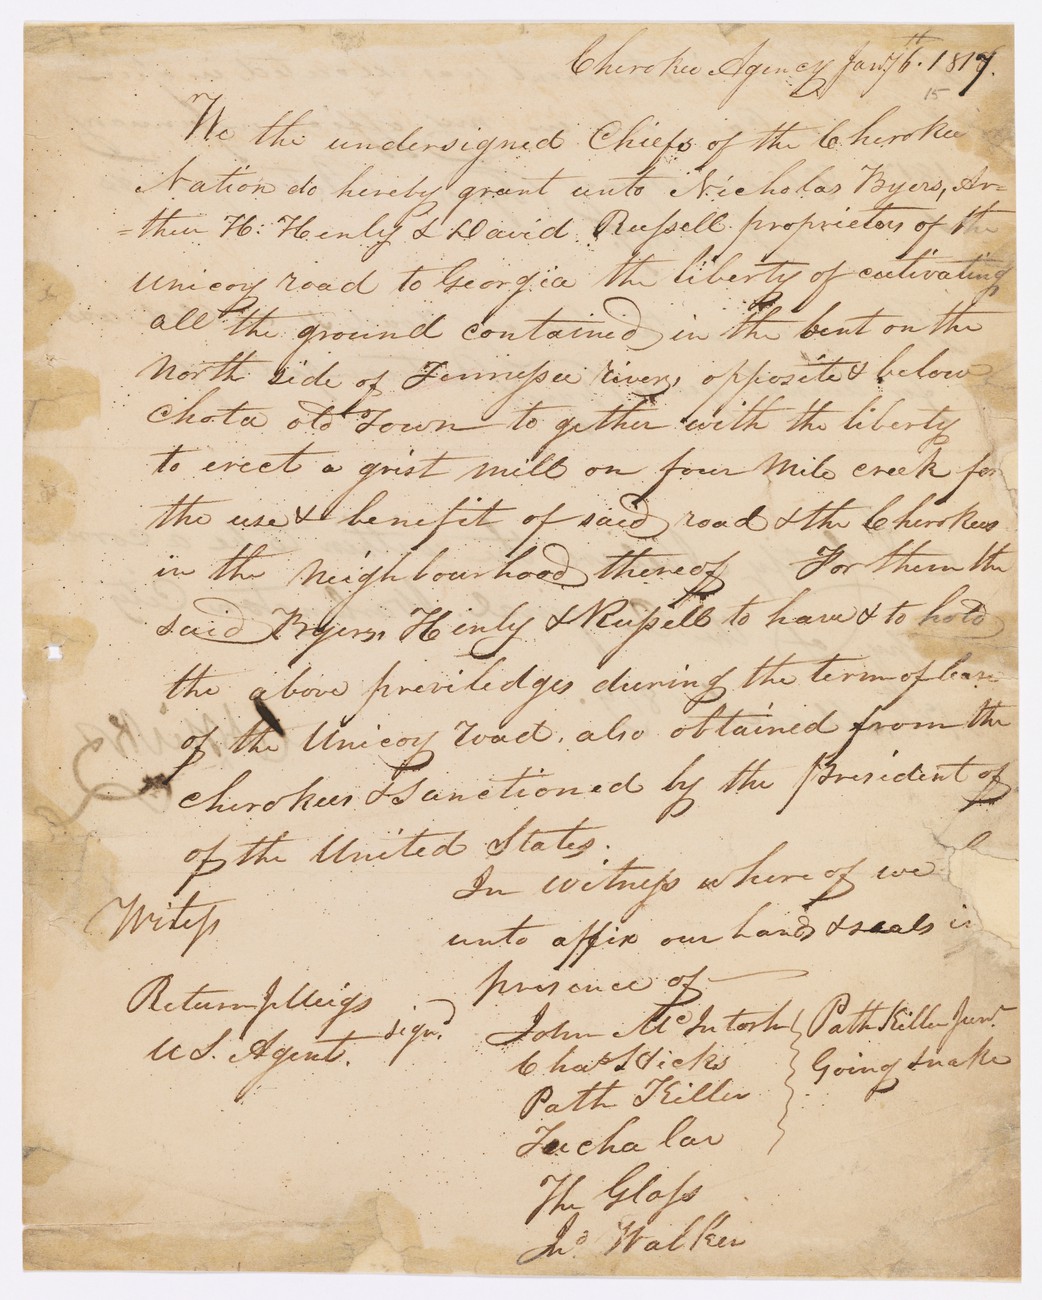 Cherokee Agency Jany 6th. 1817.
15
We the undersigned Chiefs of the Cherokee
Nation do hereby grant unto Nicholas Byers, Ar=
=thur H: Henly & David Russell proprietors of the
Unicoy road to Georgia the liberty of cultivating
all the ground contained in the bent on the
North side of Tennessee river, opposite & below
Chota old Town to gether with the liberty
to erect a grist mill on four Mile creek for
the use & benefit of said road & the Cherokees
in the Neighbourhood thereof For them the
said Byers, Henly & Russell to have & to hold
the above previledges during the term of leas
of the Unicoy road, also obtained from the
Cherokees & Sanctioned by the President of
of the United States.
In witness where of we
unto affix our hands & seals in
presence of
Witess
Return J Meigs
U S. Agent.
signd
John McIntosh
Chas Hicks
Path Killer
Tuchalar
The Glass
Jno Walker
Path Killer Junr.
Going Snake